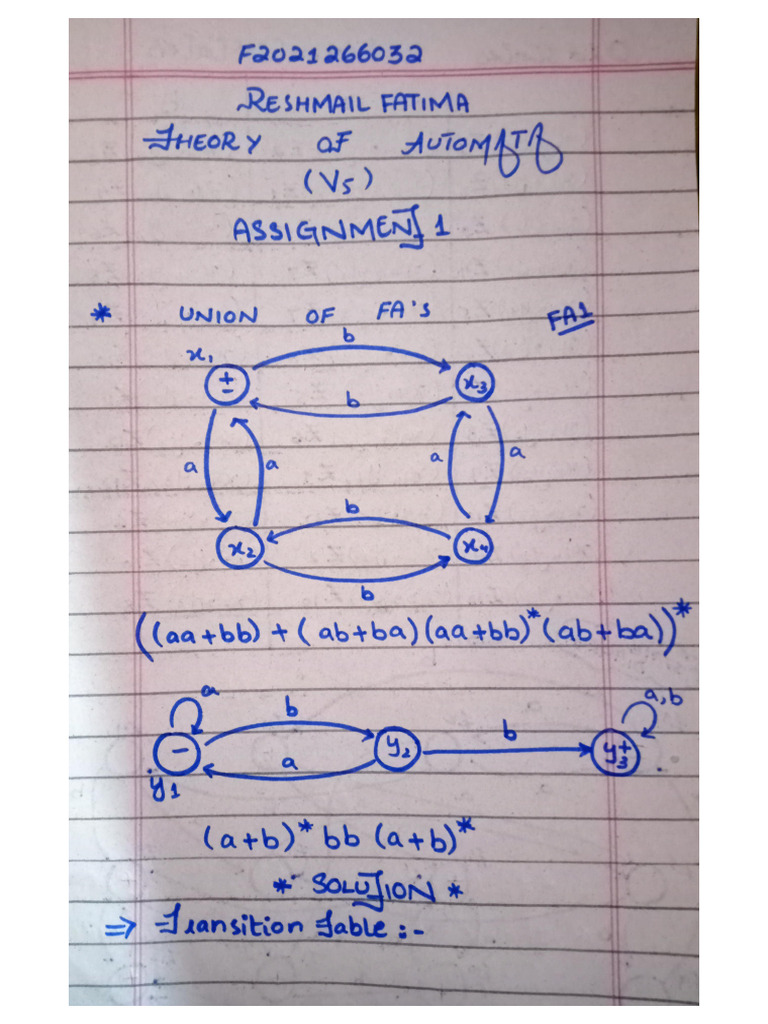 F2021266032
RESHMAIL FATIMA
THEORY OF AUTOMATA
(V5)
ASSIGNMENT 1
* UNION OF FA'S FA1
b
x₁ ± x₃
b
a a a a
b
x₂ x₄
b
((aa+bb) + (ab+ba)(aa+bb)*(ab+ba))*
a b a,b
- y₂ b y₃+
a
y₁
(a+b)* bb (a+b)*
* SOLUTION *
⇒ Transition Table :-